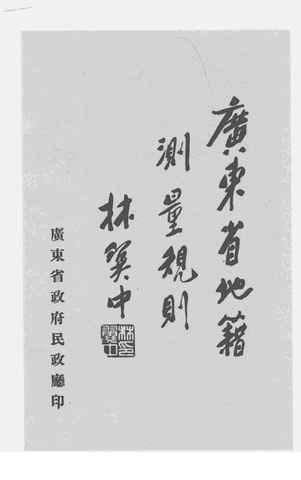 廣東省地籍
測量規則
林翼中
廣東省政府民政廳印